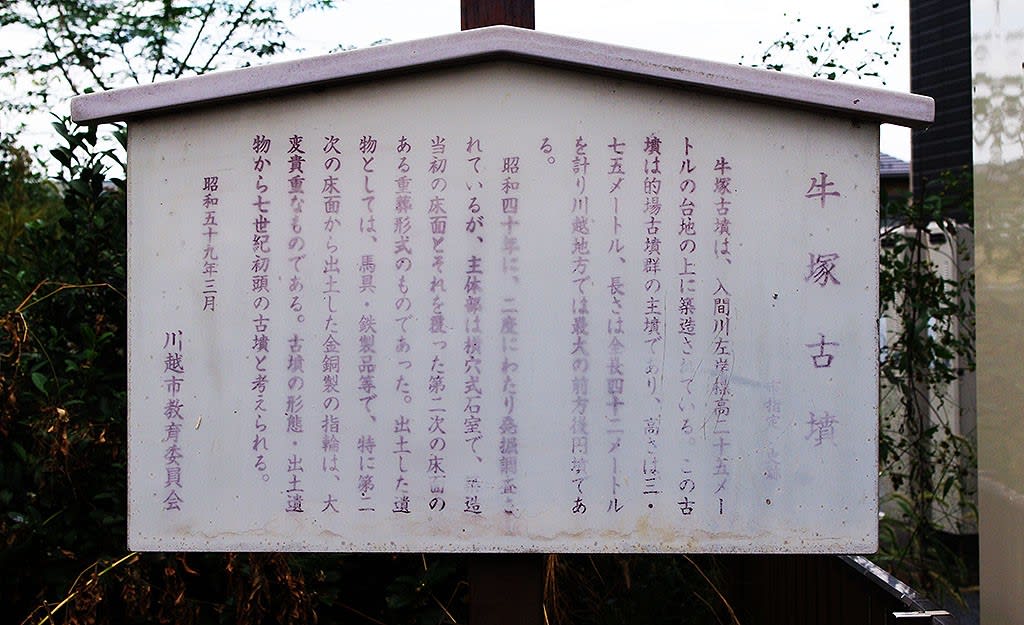 牛塚古墳
市指定・史跡
牛塚古墳は、入間川左岸標高二十五メー
トルの台地の上に築造されている。この古
墳は的場古墳群の主墳であり、高さは三・
七五メートル、長さは全長四十二メートル
を計り川越地方では最大の前方後円墳であ
る。
昭和四十年に、二度にわたり発掘調査さ
れているが、主体部は横穴式石室で、築造
当初の床面とそれを覆った第二次の床面の
ある重葬形式のものであった。出土した遺
物としては、馬具・鉄製品等で、特に第二
次の床面から出土した金銅製の指輪は、大
変貴重なものである。古墳の形態・出土遺
物から七世紀初頭の古墳と考えられる。
昭和五十九年三月
川越市教育委員会